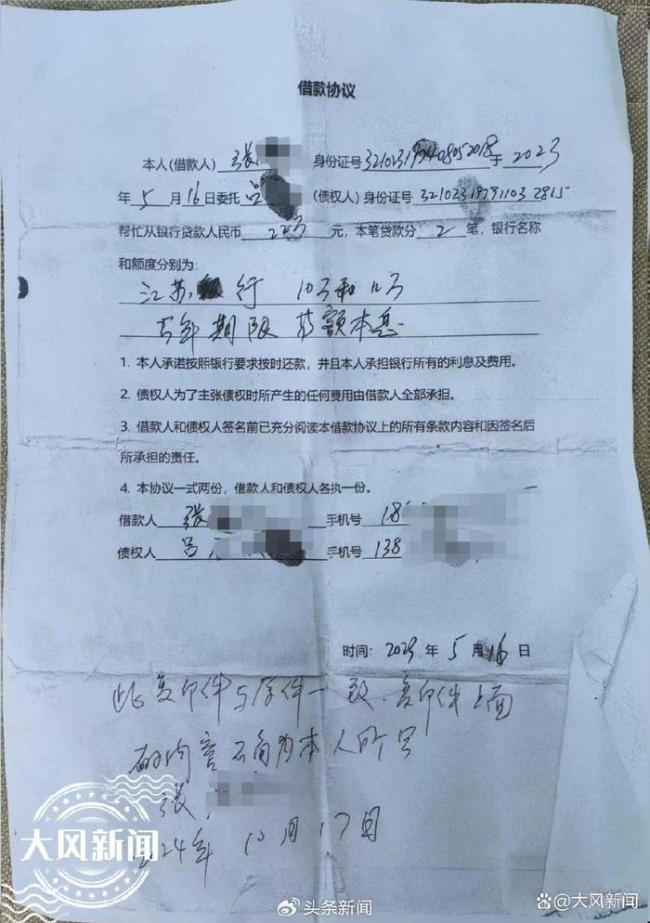 借款协议
本人(借款人) 张 身份证号 于 2023
年 5 月 16日委托 吕 (债权人)身份证号 321023197911032815
帮忙从银行贷款人民币 22万 元，本笔贷款分 2 笔，银行名称
和额度分别为：
江苏银行 10万和12万
五年期限 等额本息
1. 本人承诺按照银行要求按时还款，并且本人承担银行所有的利息及费用。
2. 债权人为了主张债权时所产生的任何费用由借款人全部承担。
3. 借款人和债权人签名前已充分阅读本借款协议上的所有条款内容和因签名后
所承担的责任。
4. 本协议一式两份，借款人和债权人各执一份。
借款人 张 手机号 18
债权人 吕 手机号 138
时间：2023 年 5 月 16 日
此复印件与原件一致，复印件上面
的内容 为本人所写
张
2024年 10月17日
大风新闻
头条新闻
@大风新闻